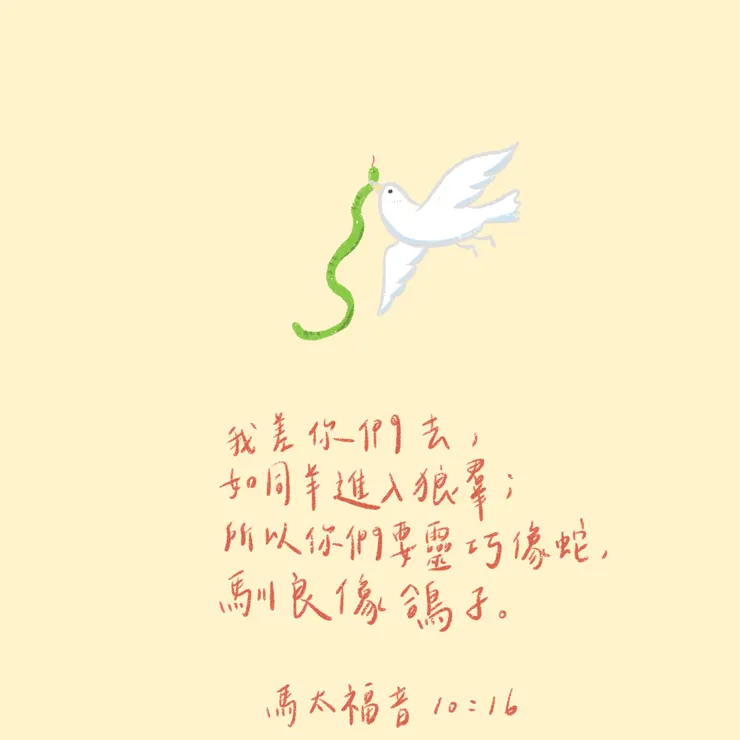 我差你們去，
如同羊進入狼羣；
所以你們要靈巧像蛇，
馴良像鴿子。
馬太福音 10：16